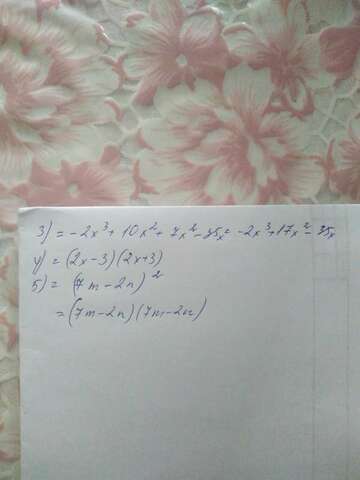 3) = -2x³ + 10x² + 7x² - 35x = -2x³ + 17x² - 35x
4) = (2x-3)(2x+3)
5) = (7m-2n)²
= (7m-2n)(7m-2n)